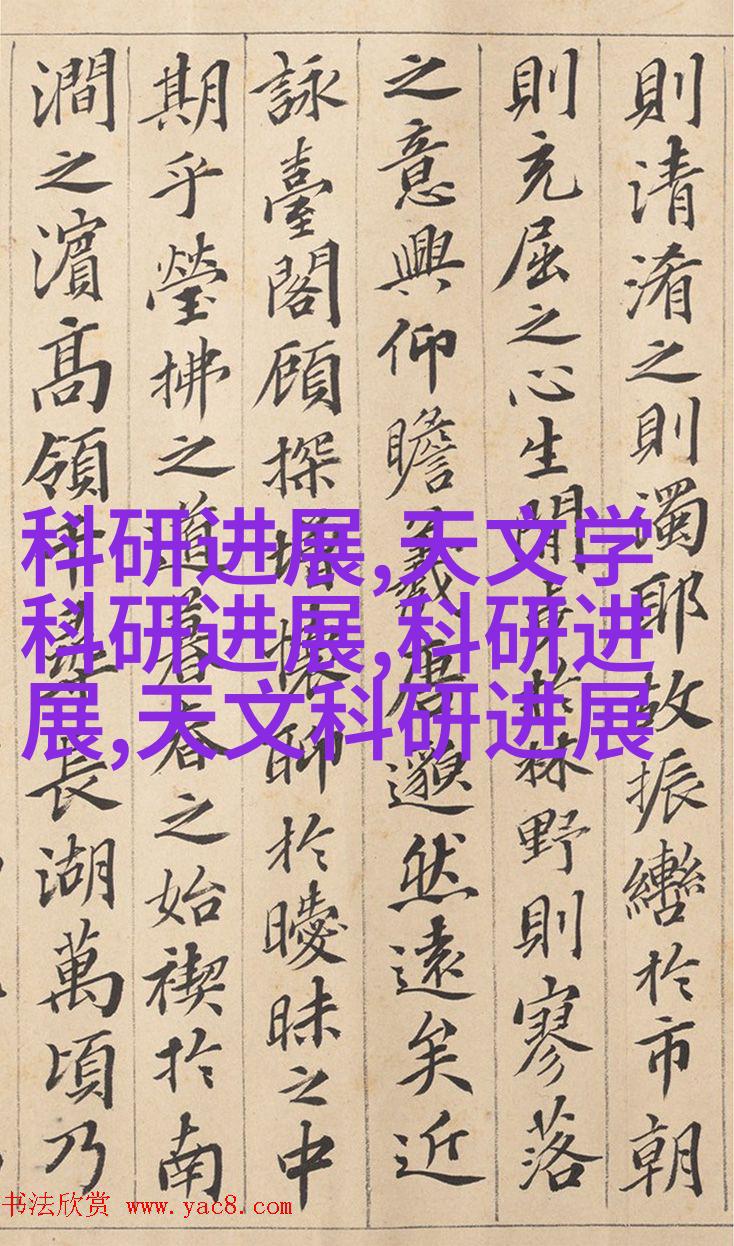 則清淆之則濁耶故振轡於市朝
則充屈之心生閒步於林野則寥落
之意興仰瞻羲唐邈然遠矣近
詠臺閣顧探增懷聊於曖昧之中
期乎瑩拂之道暮春之始禊於南
澗之濱高領千尋長湖萬頃乃
科研进展,天文学
科研进展,科研进
展,天文科研进展
书法欣赏 www.yac8.com